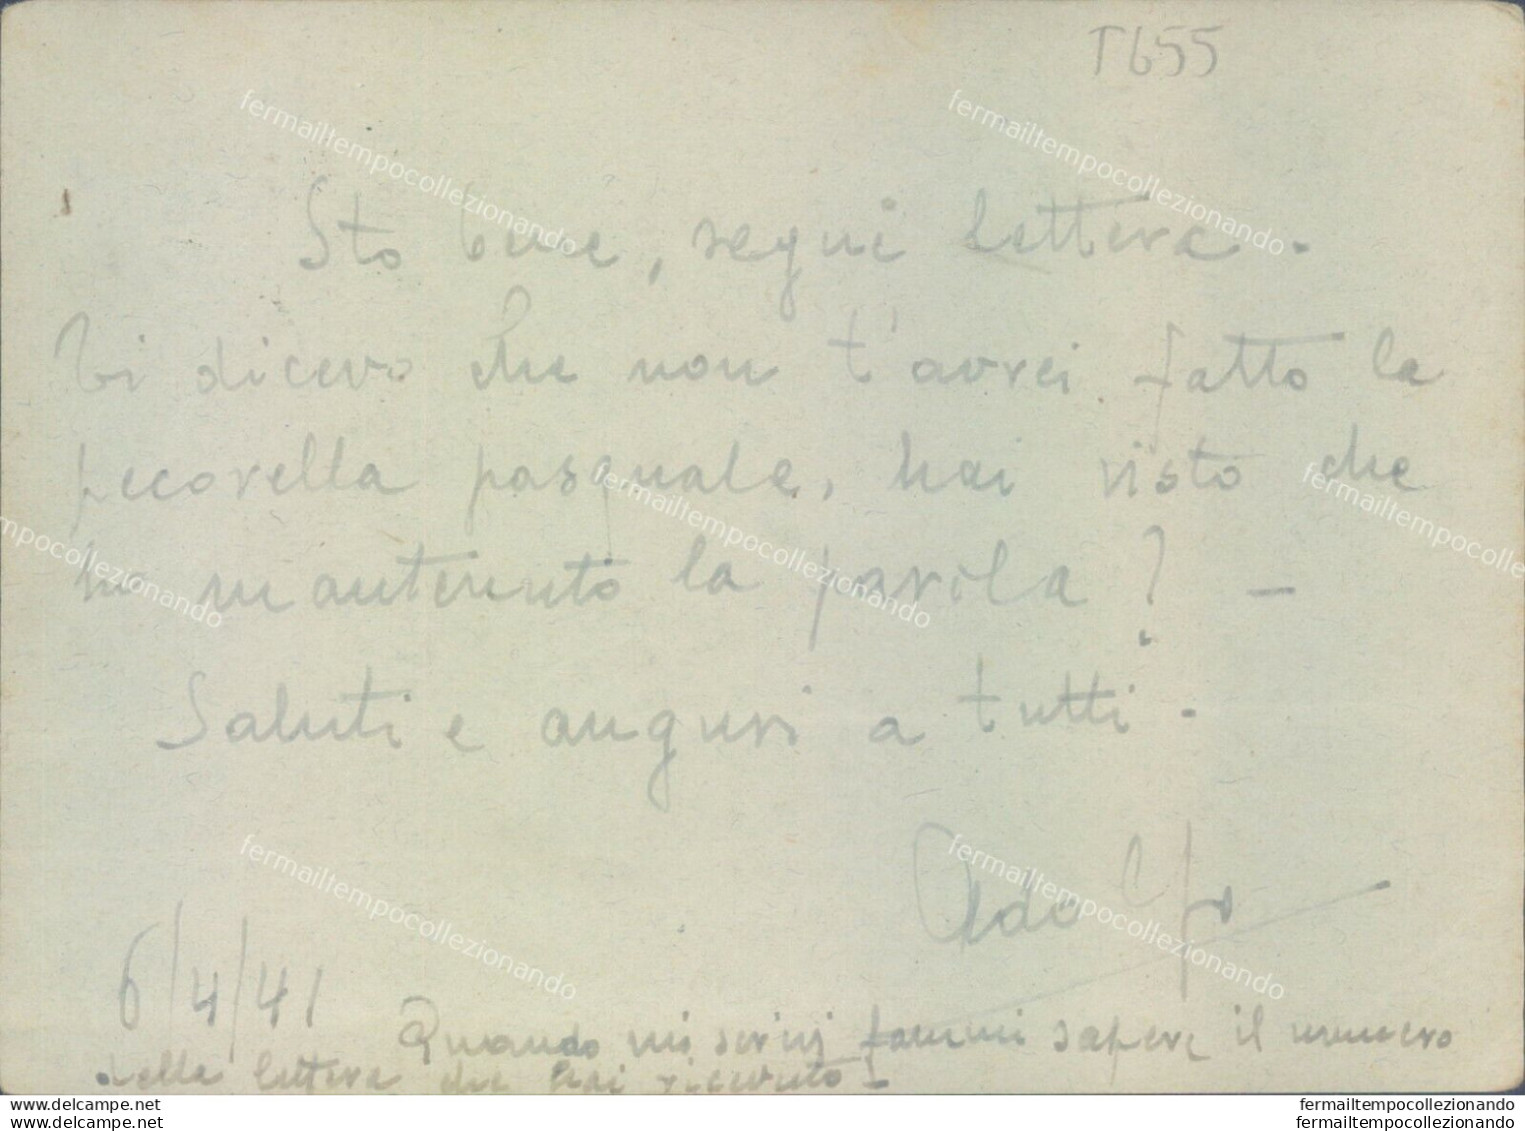 T655
Sto bene, segui lettera.
Ti dicevo che non t'avrei fatto la
pecorella pasquale, hai visto che
ho mantenuto la parola? —
Saluti e auguri a tutti.
Adolfo
6/4/41
Quando mi scrivi fammi sapere il numero
della lettera che hai ricevuto -
fermailtempocollezionando
fermailtempocollezionando
fermailtempocollezionando
fermailtempocollezionando
fermailtempocollezionando
fermailtempocollezionando
fermailtempocollezionando
www.delcampe.net
fermailtempocollezionando
www.delcampe.net
fermailtempocollezionando